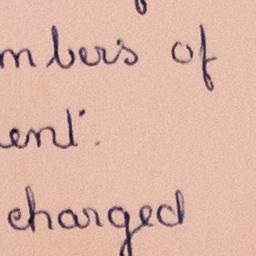 mbers of
ent.
charged